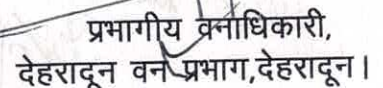 प्रभागीय वनाधिकारी,
देहरादून वन प्रभाग,देहरादून।